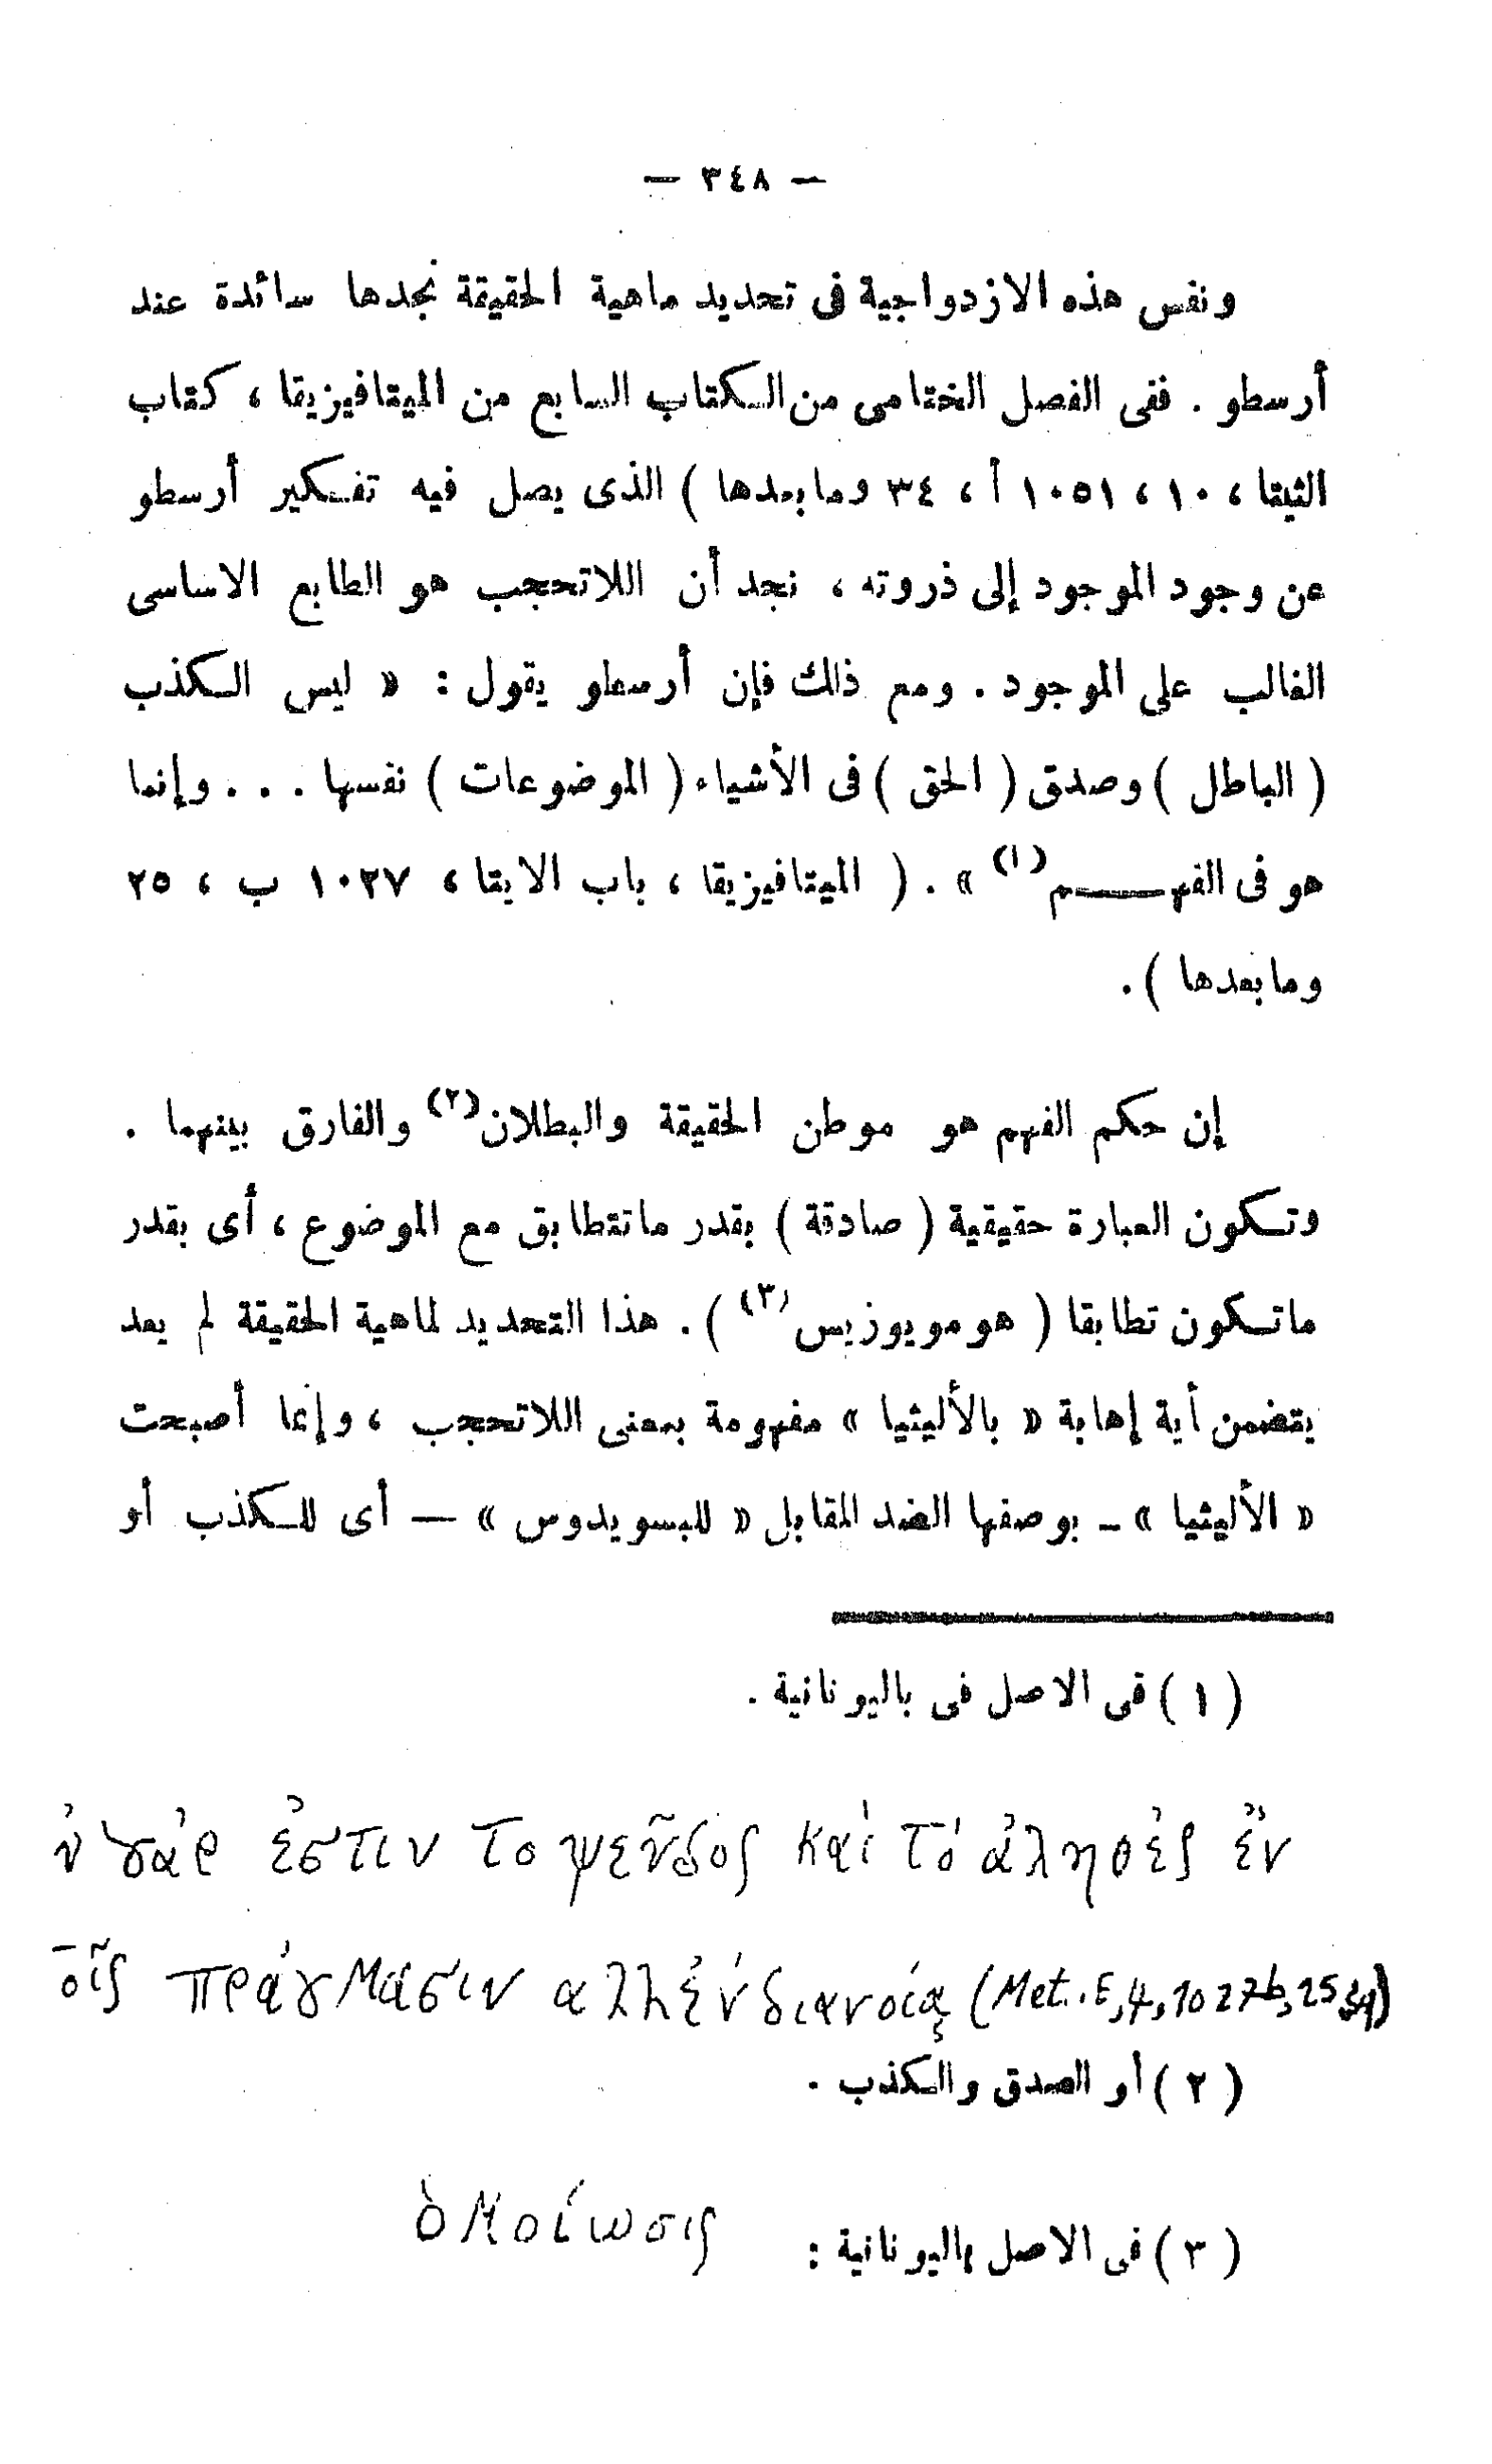 — ٣٤٨ —
ونفس هذه الازدواجية فى تحديد ماهية الحقيقة نجدها سائدة عند
أرسطو . ففى الفصل الختامى من الكتاب السابع من الميتافيزيقا ، كتاب
الثيتا ، ١٠ ، ١٠٥١ أ ، ٣٤ وما بعدها ) الذى يصل فيه تفكير أرسطو
عن وجود الموجود إلى ذروته ، نجد أن اللاتحجب هو الطابع الاساسى
الغالب على الموجود . ومع ذلك فإن أرسطو يقول : « ليس الكذب
( الباطل ) وصدق ( الحق ) فى الأشياء ( الموضوعات ) نفسها . . . وإنما
هو فى الفهــــم(١) » . ( الميتافيزيقا ، باب الايتا ، ١٠٢٧ ب ، ٢٥
وما بعدها ) .
إن حكم الفهم هو موطن الحقيقة والبطلان(٢) والفارق بينهما .
وتكون العبارة حقيقية ( صادقة ) بقدر ما تتطابق مع الموضوع ، أى بقدر
ما تكون تطابقا ( هومويوزيس(٣) ) . هذا التحديد لماهية الحقيقة لم يعد
يتضمن أية إهابة « بالأليثيا » مفهومة بمعنى اللاتحجب ، وإنما أصبحت
« الأليثيا » ــ بوصفها الضد المقابل « للبسويدوس » — أى للكذب أو
( ١ ) فى الاصل فى باليونانية .
ὐ γάρ ἐστιν το ψεῦδος καὶ τό ἀληθές ἐν
τοῖς πράγμασιν αλλ ἐν διανοίᾳ (Met. E, 4, 1027b, 25 sq)
( ٢ ) أو الصدق والكذب .
( ٣ ) فى الاصل باليونانية : ὁμοίωσις